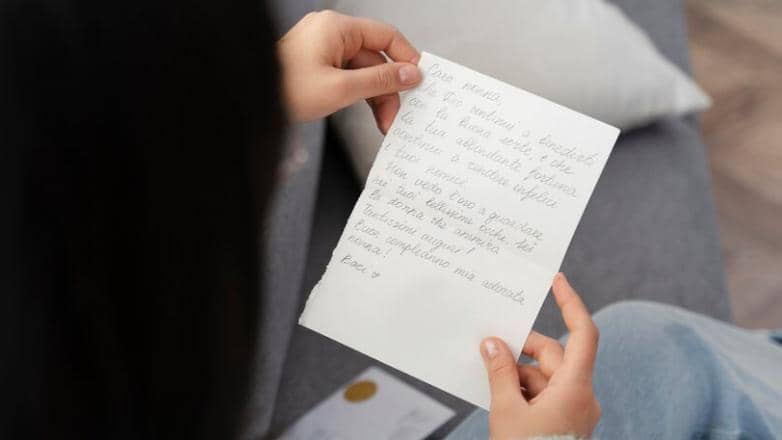 Cara nonna,
che Dio continui a benedirti
con la buona sorte, e che
la tua abbondante fortuna
continui a rendere infelici
i tuoi nemici.
Non vedo l'ora a guardare
nei tuoi bellissimi occhi. Sei
la donna che ammira
Tantissimi auguri!
Buon compleanno mia adorata
nonna!
Baci ♡